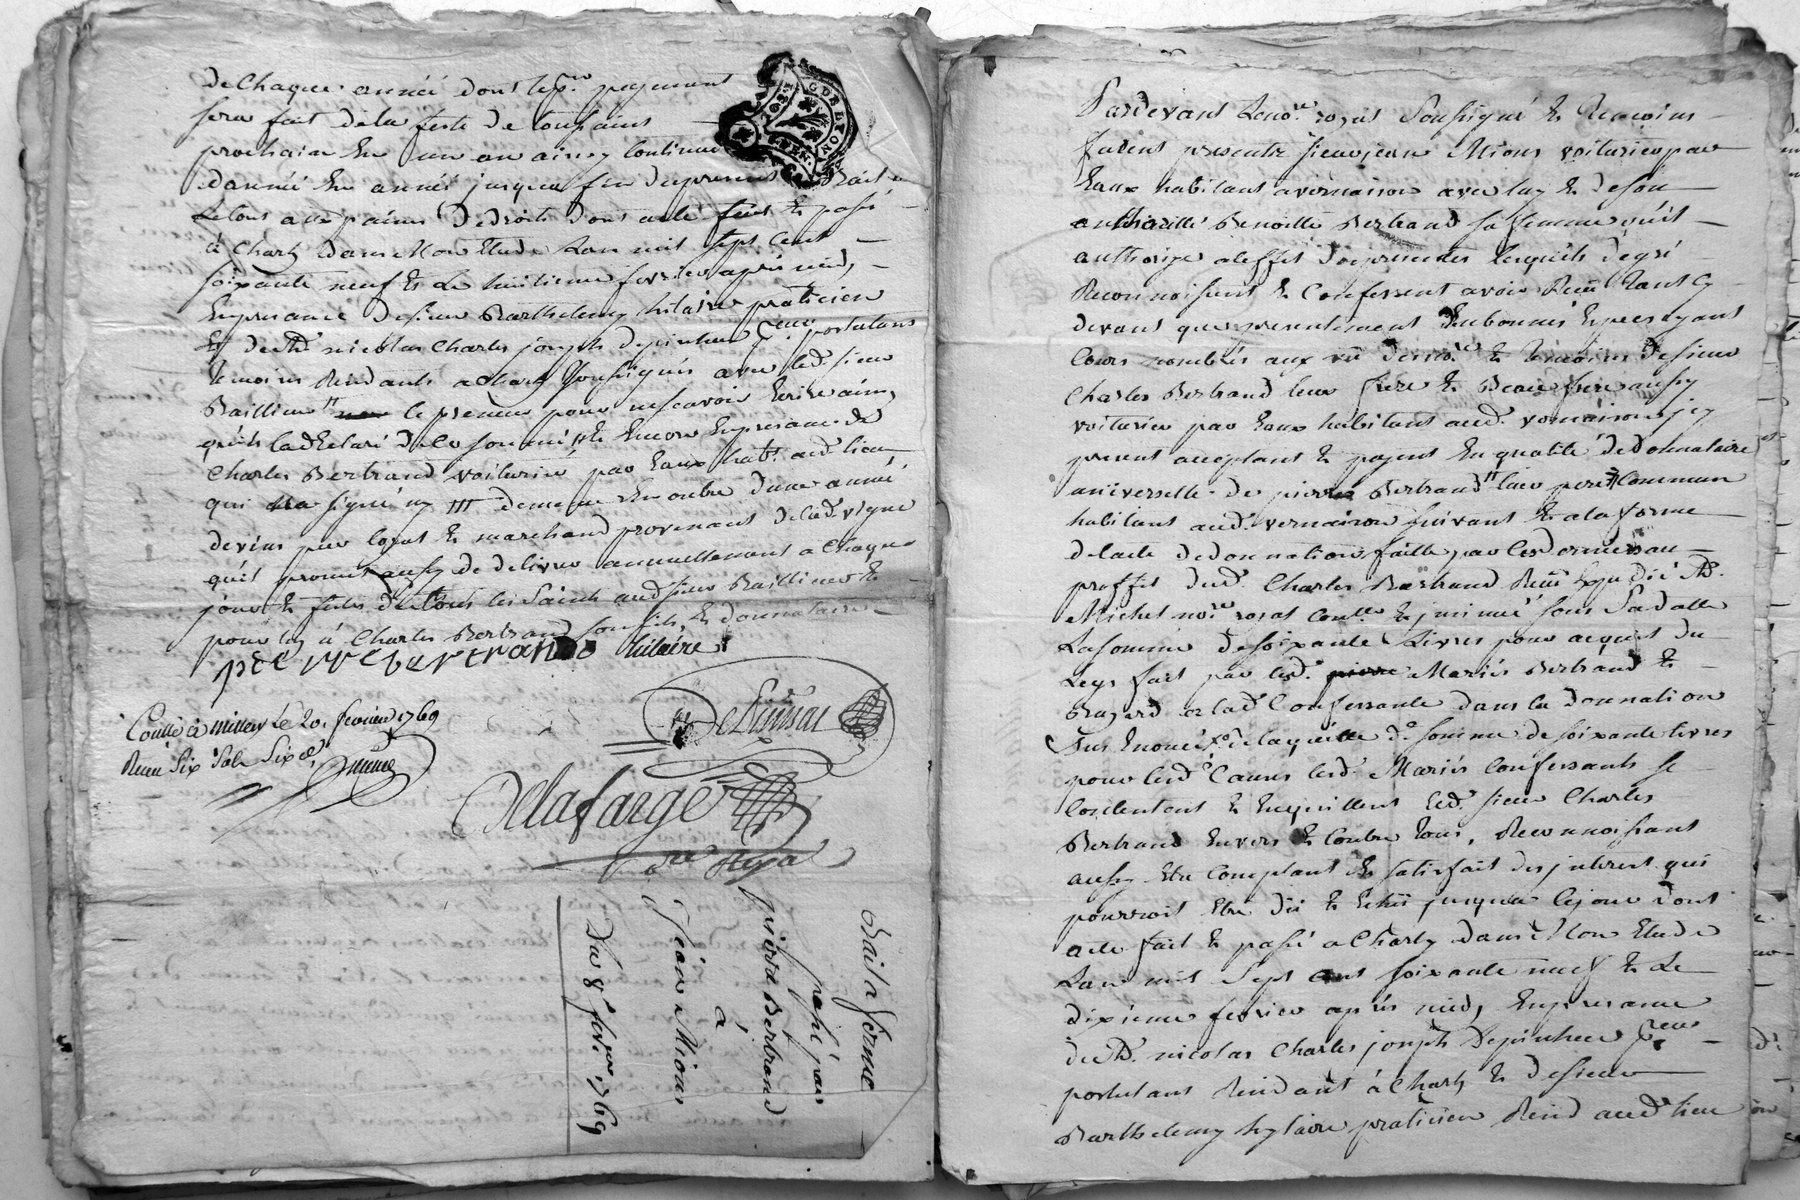 de Chaque année dont le pr. payement
sera fait de la feste de toussaints
prochaine en un an ainsy Continuer
dannée en année jusqua fin du present Bail
à Charly dans Mon Etude Lan mil sept Cent
soixante neuf & Le huitieme fevrier après midy
En presence de sieur Barthelemy hilaire praticien
& de Me. nicolas Charles joseph Depinhee postulans
temoins Residants a Charly soussignés avec led. sieur
Bailleur le preneur pour ne scavoir Ecrire ainsy
quils la declaré de ce sommé & Encore En presence de
Charles Bertrand voiturier par Eaux habt. aud. lieu
qui a signé demeure En outre dune année
de vin pur loyal & marchand provenant de lad. vigne
quil promet aussy de delivrer annuellement a Chaque
jour & festes de tous les Saints aud. sieur Bailleur &
pour luy à Charles Bertrand son fils & donnataire
pierre bertrand hilaire
Contlé à Millery le 20. fevrier 1769
Receu Six Sols Six d.
Delafarge
nre. Royal
Bail a ferme
passé par
pierre Bertrand
à
Jean Mions
Du 8e fevrier 1769
G. DE LYON
Pardevant Le nore. royal Soussigné & Temoins
furent presents sieur jean Mions voiturier par
Eaux habitant a vernaison avec luy & de son
authorité Benoitte Bertrand sa femme quil
authorize a leffet des presentes lesquels de gré
Reconnoissent & Confessent avoir Receu tant cy
devant que presentement En bonnes Especes ayant
Cours nombrés aux vü desd. nore & temoins de sieur
Charles Bertrand leur frere & Beau frere aussy
voiturier par Eaux habitant aud. vernaison icy
present acceptant & payant En qualité de donnataire
universelle de pierre Bertrand leur pere Commun
habitant aud. vernaison suivant & a la forme
de lacte de donnation faitte par Ce dernier au
proffit dud. Charles Bertrand Receu Expedié Me.
Michel nore royal Contlé & insinué sous Sa datte
La somme de soixante Livres pour acquit du
Legs fait par lesd. pierre Mariés Bertrand &
a lad. Confessante dans la donnation
Sus Enoncée de laquelle d. somme de soixante livres
pour lesd. Causes lesd. Mariés Confessants se
Contentent & En quittent led. sieur Charles
Bertrand Envers & Contre tous, Reconnoissant
aussy Etre Comptant & satisfait des interest qui
pourroit Etre dû & Echü jusqua Ce jour dont
acte fait & passé a Charly dans Mon Etude
Lan mil Sept Cent soixante neuf & Le
dixieme fevrier après midy En presence
de Me. nicolas Charles joseph Depinhee
postulant Residant à Charly & de sieur
Barthelemy hylaire praticien Resid. aud. lieu